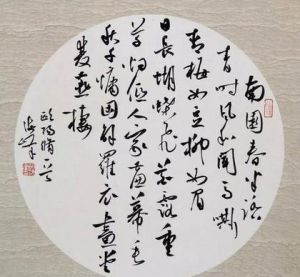 南園春半踏
青時風和聞馬嘶
青梅如豆柳如眉
日長蝴蝶飛花露重
草低人家幕垂
秋千慵困解羅衣畫堂
雙燕棲
歐陽脩